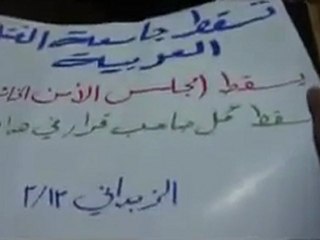 تسقط جامعة
العربية
يسقط (مجلس الأمن
سقط كل صاحب قرار في هذا
الزبداني ٢/١٢